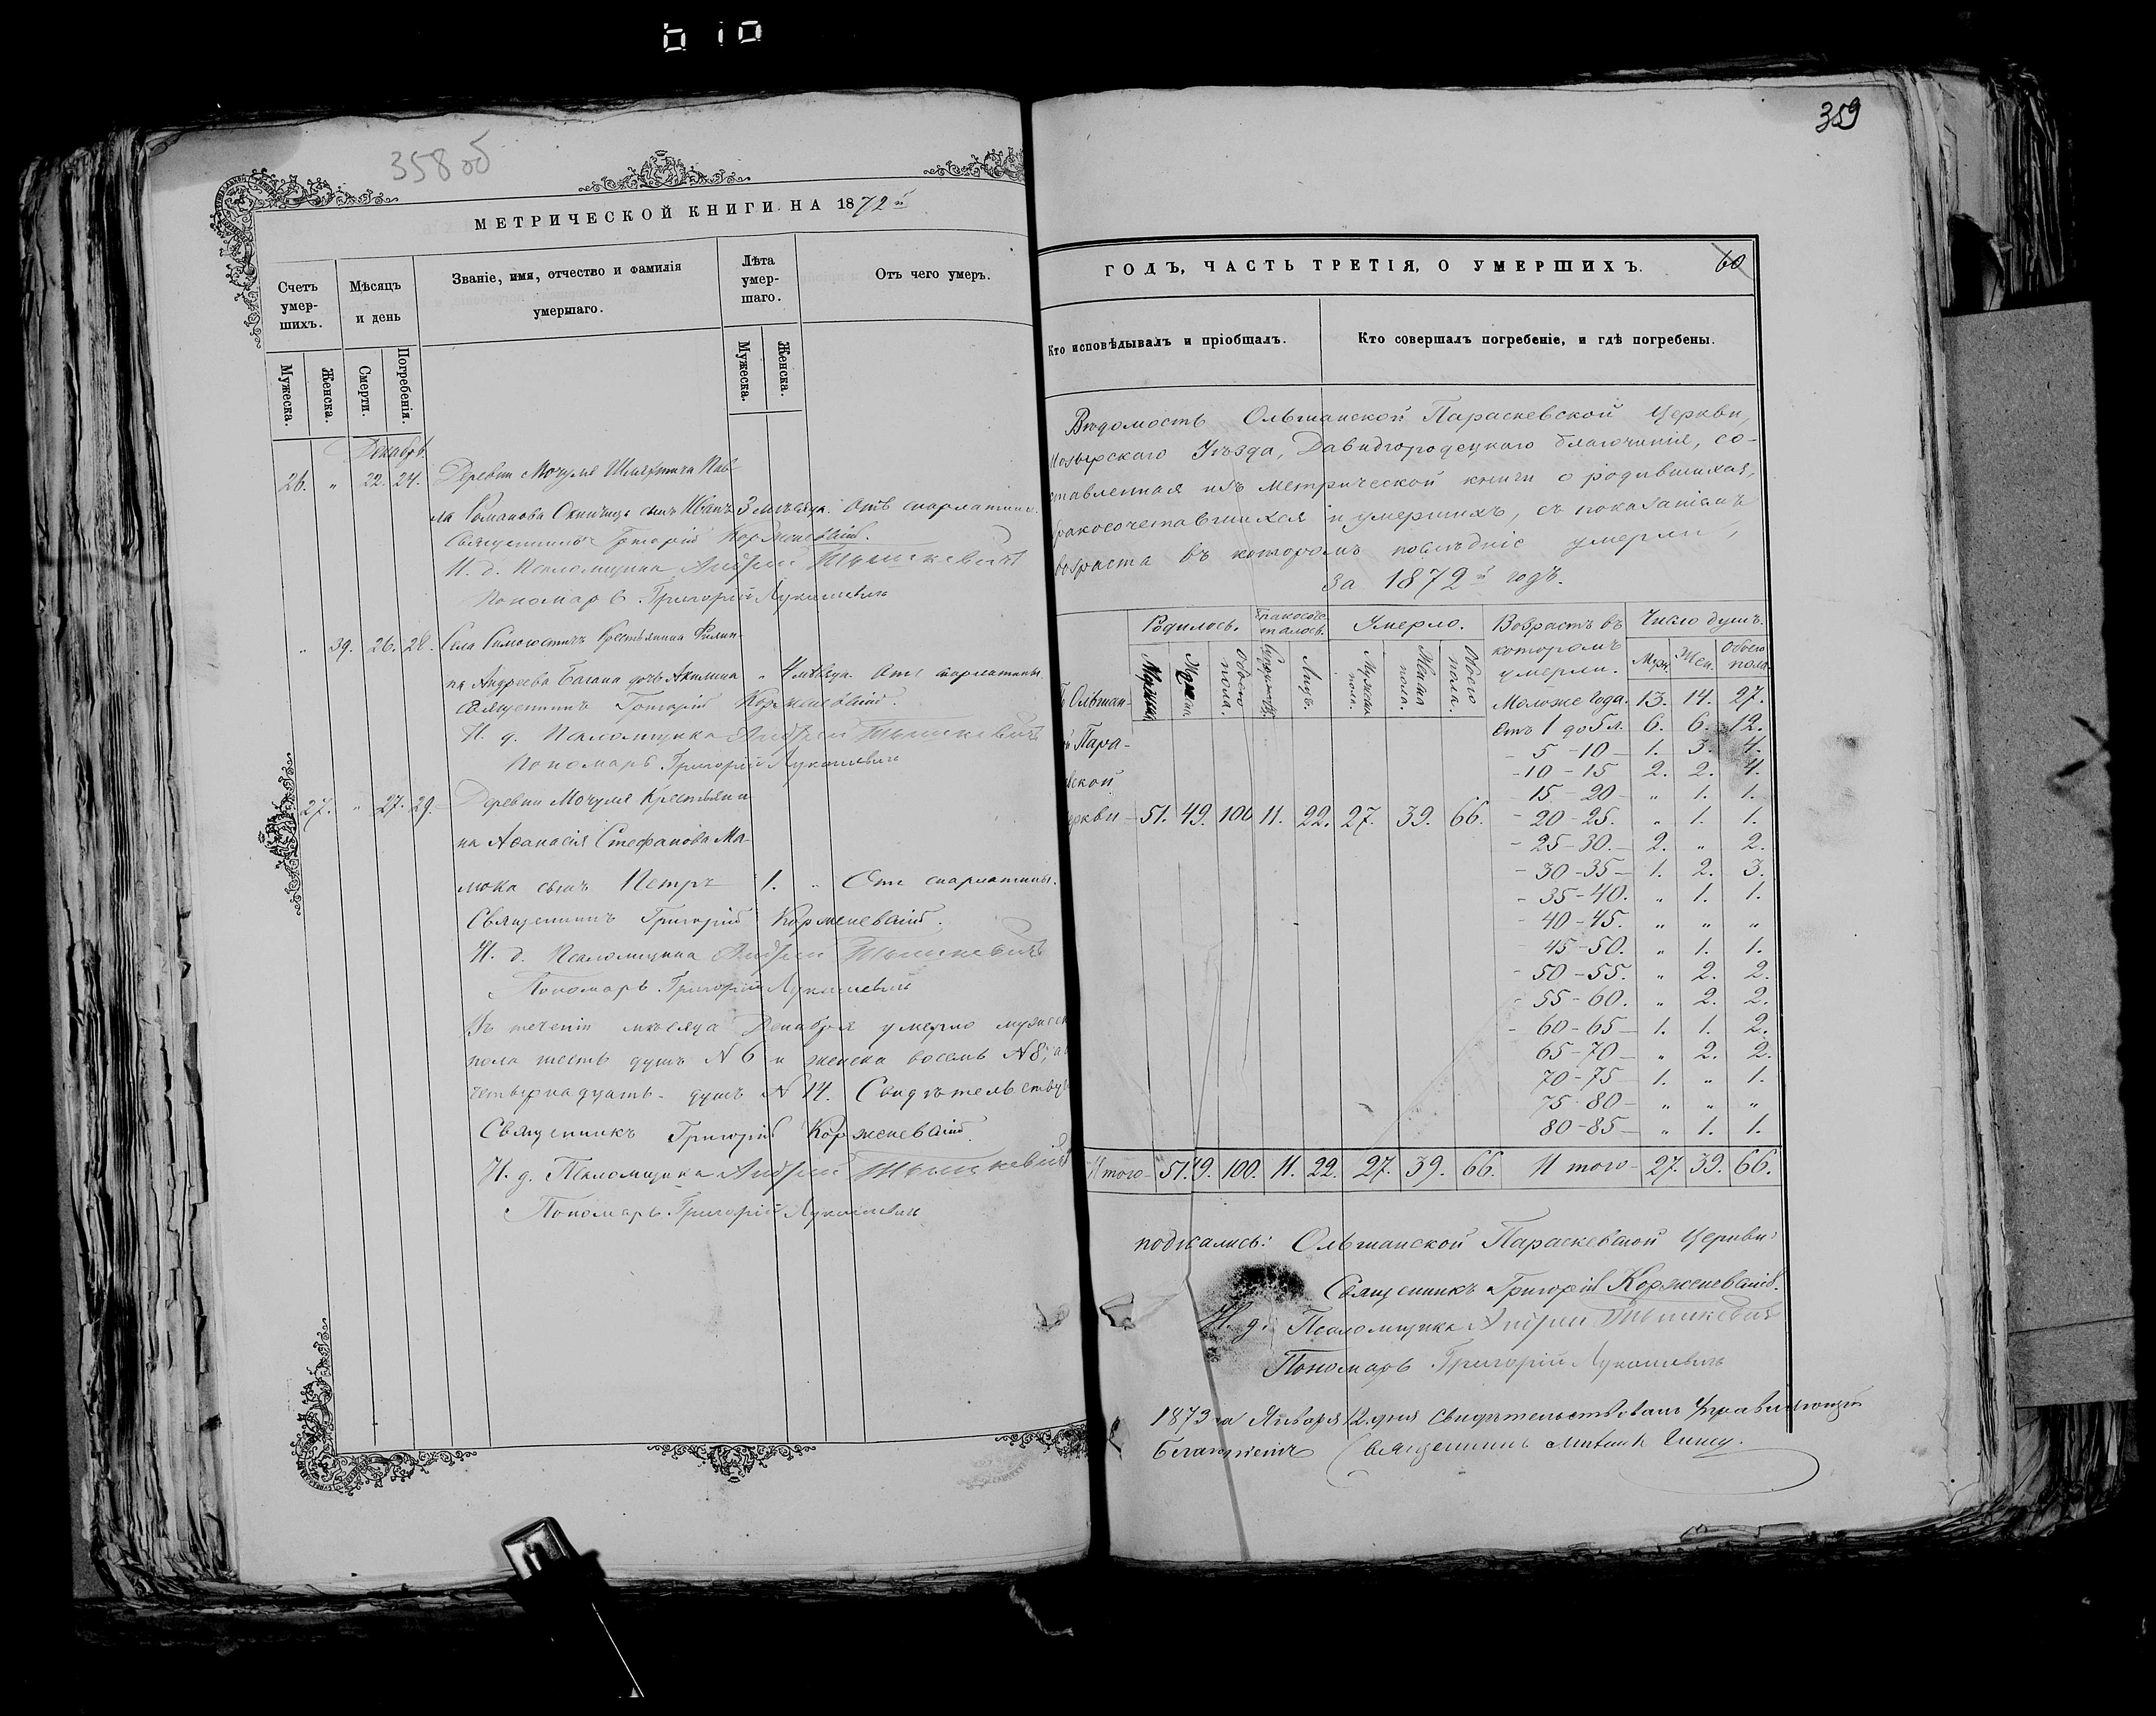 358 об
МЕТРИЧЕСКОЙ КНИГИ НА 1872й
Счетъ умер-шихъ.
Мѣсяцъ и день
Званіе, имя, отчество и фамилія умершаго.
Лѣта умер-шаго.
Отъ чего умеръ.
Мужеска.
Женска.
Смерти.
Погребенія.
Мужеска.
Женска.
Декабрь
26. „ 22. 24. Деревни Мочуля Шляхтича Пав-
ла Романова сынъ Иванъ 3 мѣсяца. Отъ скарлатины
Священникъ Григорій Корженевскій.
И. д. Псаломщика Андрей Тышкевичъ
Пономарь Григорій Лукашевичъ
„ 39. 26. 28. Села Крестьянина Филип-
па Андреева дочь Акилина „ 4 мѣсяца. Отъ скарлатины
Священникъ Григорій Корженевскій.
И. д. Псаломщика Андрей Тышкевичъ
Пономарь Григорій Лукашевичъ
27. „ 27. 29. Деревни Мочуля Крестьяни-
на Аѳанасія Стефанова Ма-
сынъ Петръ 1. „ Отъ скарлатины.
Священникъ Григорій Корженевскій.
И. д. Псаломщика Андрей Тышкевичъ
Пономарь Григорій Лукашевичъ
Въ теченіи мѣсяца Декабря умерло мужеск
пола шесть душъ N 6 и женска восемь N 8; а
четырнадцать душъ N 14. Свидѣтельству
Священникъ Григорій Корженевскій.
И. д. Псаломщика Андрей Тышкевичъ
Пономарь Григорій Лукашевичъ
359
ГОДЪ, ЧАСТЬ ТРЕТІЯ, О УМЕРШИХЪ.
60
Кто исповѣдывалъ и пріобщалъ.
Кто совершалъ погребеніе, и гдѣ погребены.
Вѣдомость Ольманской Параскевской Церкви,
Мозырскаго Уѣзда, Давидгородецкаго благочинія, со-
ставленная изъ метрической книги о родившихся,
бракосочетавшихся и умершихъ, съ показаніемъ
возраста въ которомъ послѣдніе умерли,
за 1872й годъ.
Родилось. Бракосоче-талось. Умерло. Возрастъ въ которомъ умерли. Число душъ.
Обоего пола. Лицъ. Мужеска пола. Женска пола. Обоего пола. Муж. Жен. Обоего пола
Ольман-
Пара-
ской
Церкви — 51. 49. 100 11. 22. 27. 39. 66.
Моложе года. 13. 14. 27.
Отъ 1 до 5 л. 6. 6. 12.
- 5 - 10 - 1. 3. 4.
- 10 - 15 2. 2. 4.
15 - 20 - „ 1. 1.
- 20 - 25. „ 1. 1.
- 25 - 30. - 2. „ 2.
- 30 - 35 - 1. 2. 3.
- 35 - 40. „ 1. 1.
- 40 - 45. „ „ „
45 - 50. „ 1. 1.
- 50 - 55. „ 2. 2.
- 55 - 60. „ 2. 2.
- 60 - 65 - 1. 1. 2.
65 - 70 - „ 2. 2.
70 - 75 - 1. „ 1.
75 - 80 - „ „ „
80 - 85 - „ 1. 1.
Итого - 51. 49. 100. 11. 22. 27. 39. 66. Итого - 27. 39. 66.
подписались: Ольманской Параскевской Церкви:
Священникъ Григорій Корженевскій.
И. д. Псаломщика Андрей Тышкевичъ
Пономарь Григорій Лукашевичъ
1873 г. Января 12 дня свидѣтельствовалъ Управляющій
Благочиніемъ Священникъ